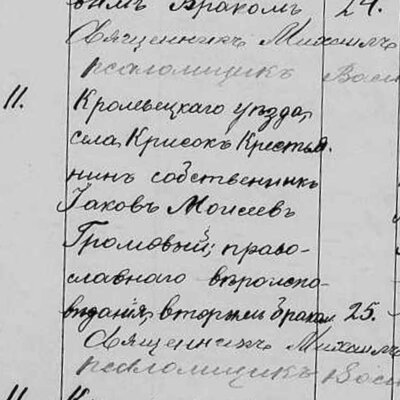 вымъ бракомъ 24.
Священникъ Михаилъ
псаломщикъ Васи
11. Кролевецкаго уѣзда,
села Крисокъ Крестья-
нинъ собственникъ
Іаковъ Моисеевъ
Громовый; право-
славнаго вѣроиспо-
вѣданія, вторымъ бракомъ 25.
Священникъ Михаилъ
псаломщикъ Васи
11.